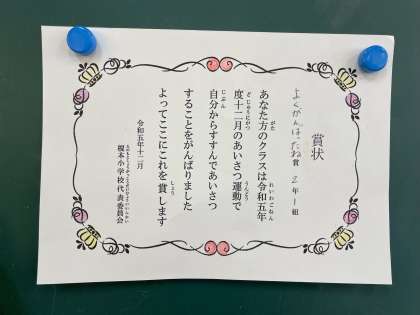 賞状
よくがんばったね賞 2年1組
あなた方のクラスは令和五年
度十二月のあいさつ運動で
自分からすすんであいさつ
することをがんばりました
よってここにこれを賞します
令和五年十二月
榎本小学校代表委員会